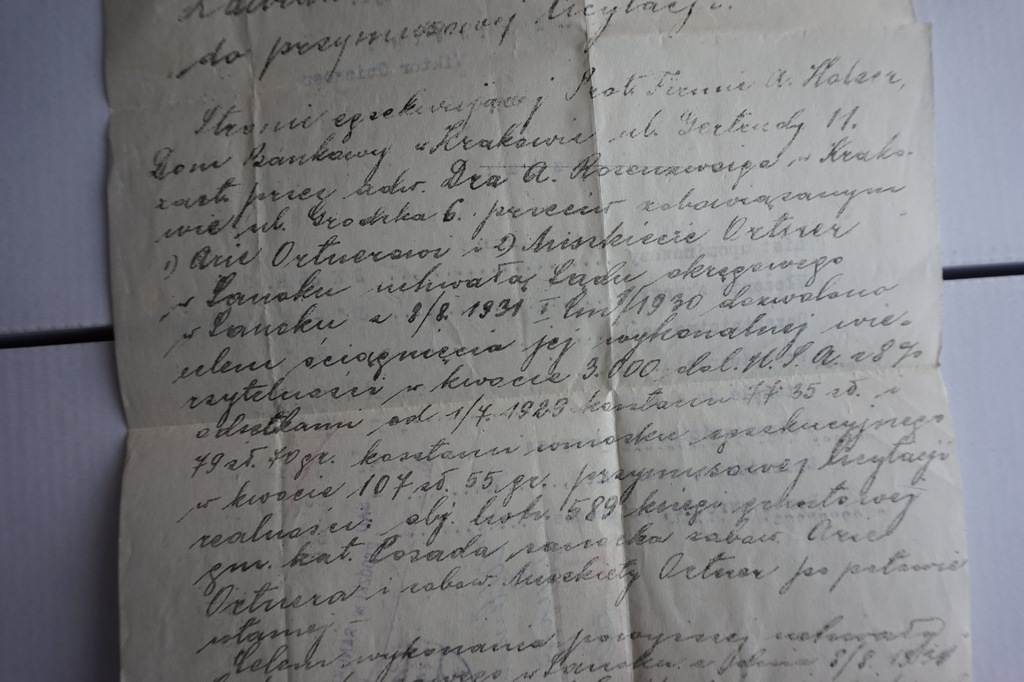 do przymusowej licytacji.
Stronie egzekwującej Prot. Firmie A. Holzer,
Dom Bankowy w Krakowie ul. Gertrudy 11.
zast. przez adw. Dra A. Rosenzweiga w Krako-
wie ul. Grodzka 6. przeciw zobowiązanym
1) Arie Ortnerowi i 2) Ortner
w Sanoku uchwałą Sądu okręgowego
w Sanoku z 8/8. 1931 I 1930 dozwolono
celem ściągnięcia jej wykonalnej wie-
rzytelności w kwocie 3.000 dol. U.S.A. z 8%
odsetkami od 1/7. 1929 kosztami 77 35 zł. i
79 zł. 70 gr. kosztami wniosku egzekucyjnego
w kwocie 107 zł. 55 gr. przymusowej licytacji
realności obj. lwh. 589 księgi gruntowej
gm. kat. Posada sanocka zobow. Arie
Ortnera i zobow. Ortner po połowie
własnej.
Celem wykonania powyższej uchwały
w Sanoku z dnia 8/8. 1931